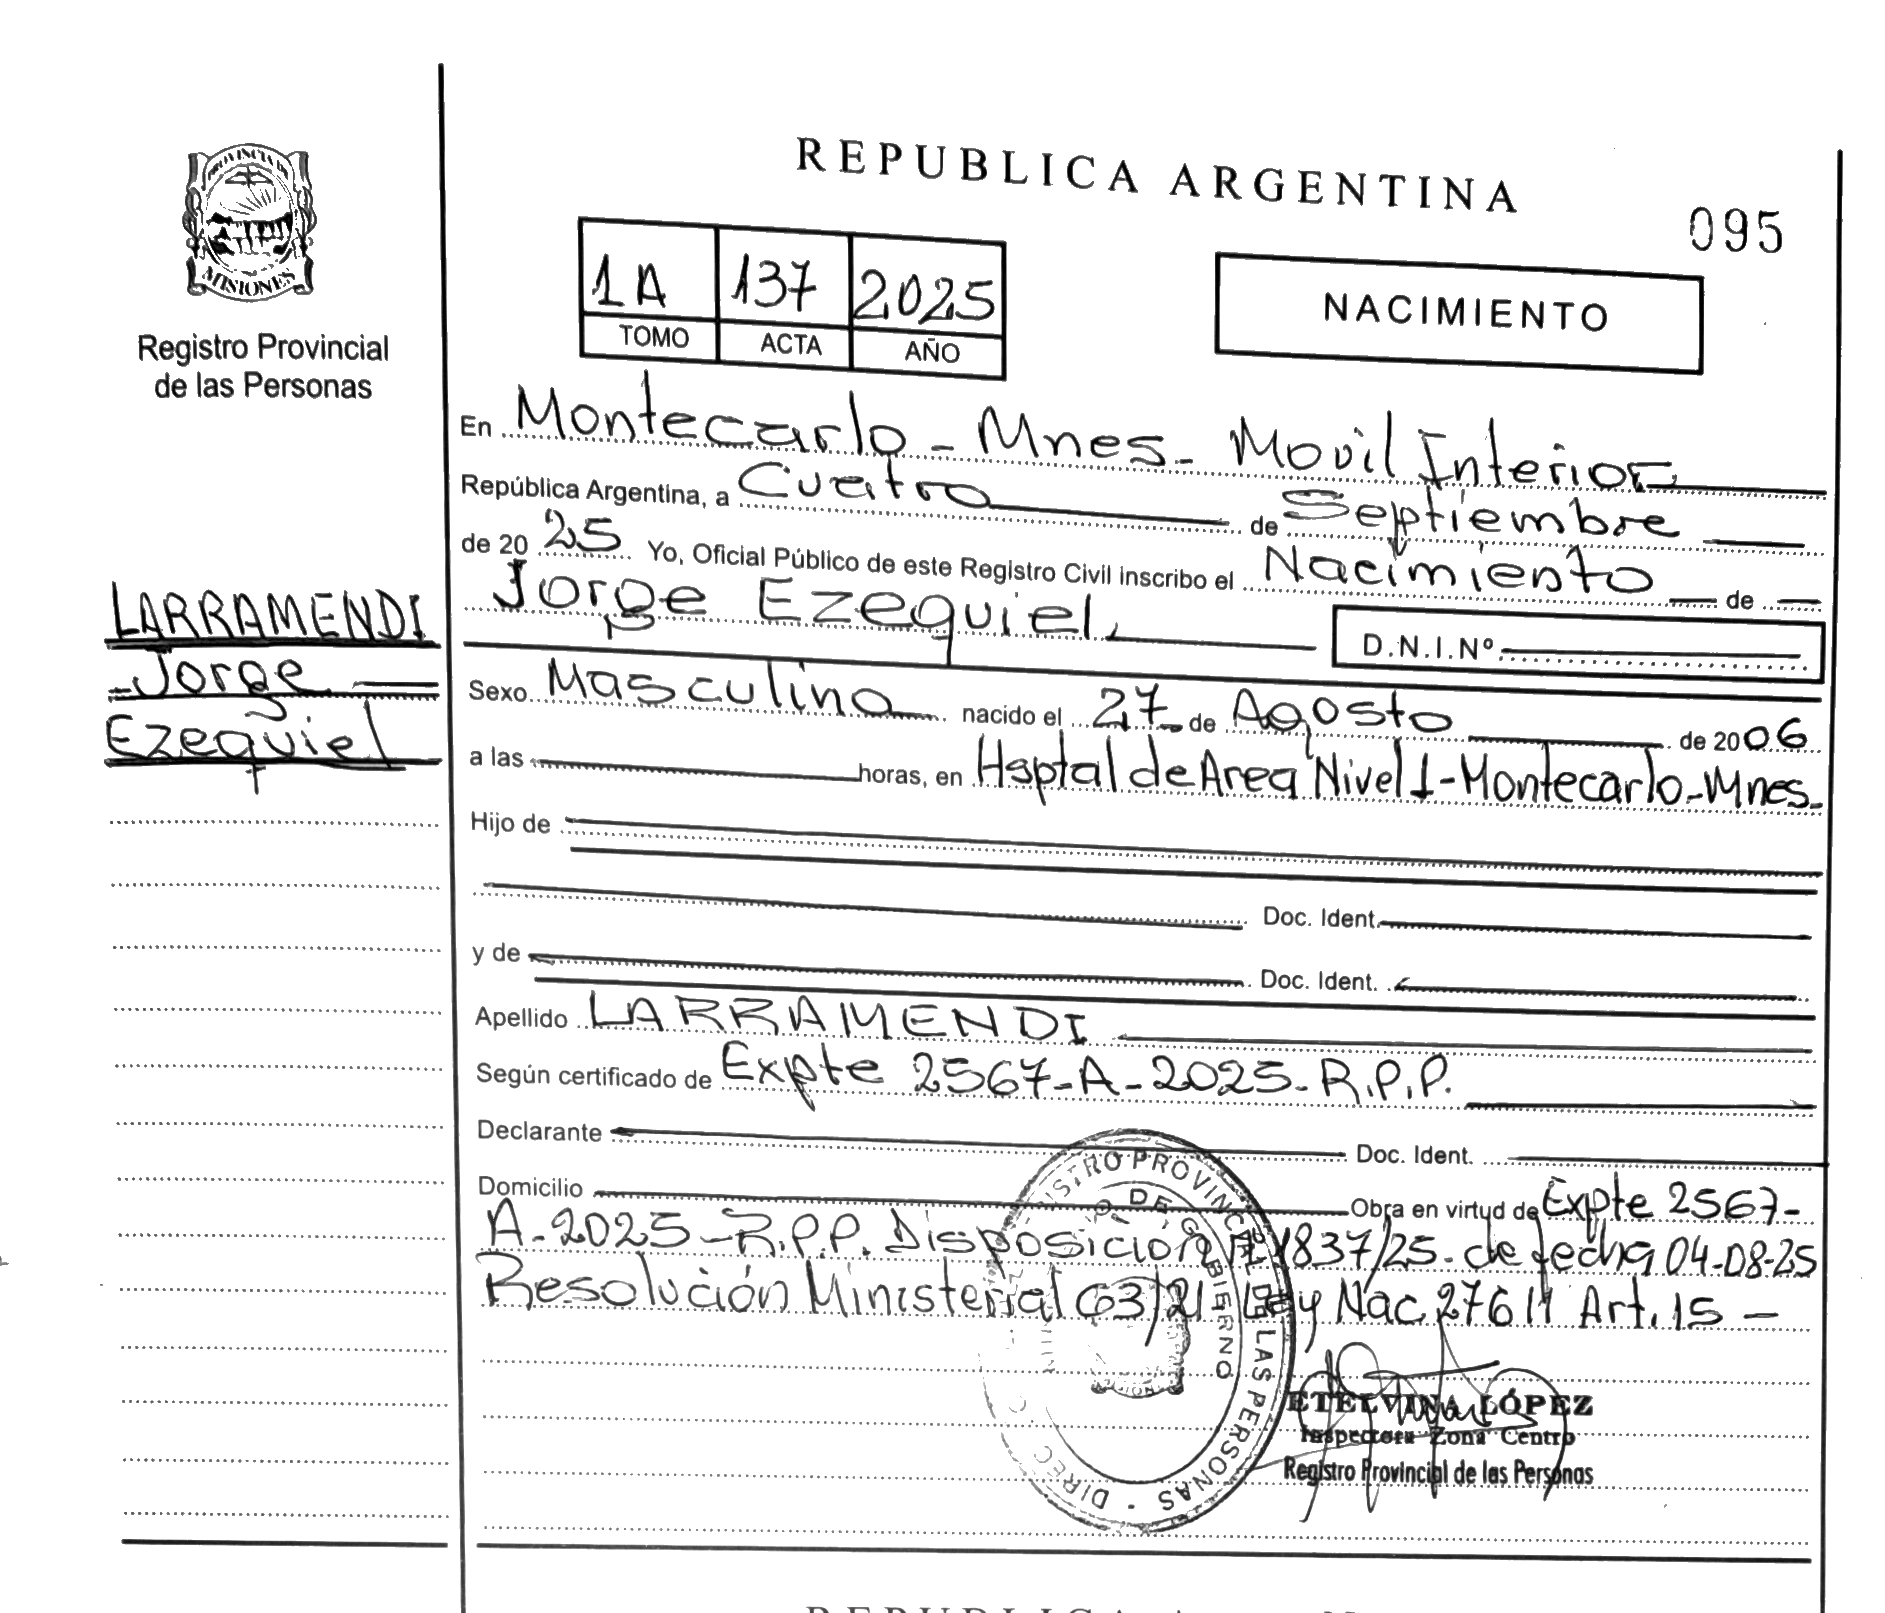 REPUBLICA ARGENTINA
095
PROVINCIA DE
MISIONES
Registro Provincial
de las Personas
1A 137 2025
TOMO ACTA AÑO
NACIMIENTO
LARRAMENDI
Jorge
Ezequiel
En Montecarlo - Mnes - Movil Interior
República Argentina, a Cuatro de Septiembre
de 20 25 Yo, Oficial Público de este Registro Civil inscribo el Nacimiento de
Jorge Ezequiel
D.N.I.Nº
Sexo Masculino nacido el 27 de Agosto de 2006
a las horas, en Hsptal de Area Nivel I - Montecarlo - Mnes -
Hijo de
Doc. Ident.
y de Doc. Ident.
Apellido LARRAMENDI
Según certificado de Expte 2567-A-2025-R.P.P.
Declarante Doc. Ident.
Domicilio Obra en virtud de Expte 2567-
A-2025-R.P.P. Disposición 1837/25 de fecha 04-08-25
Resolución Ministerial 63/21 Ley Nac 27611 Art. 15 -
ETELVINA LÓPEZ
Inspectora Zona Centro
Registro Provincial de las Personas